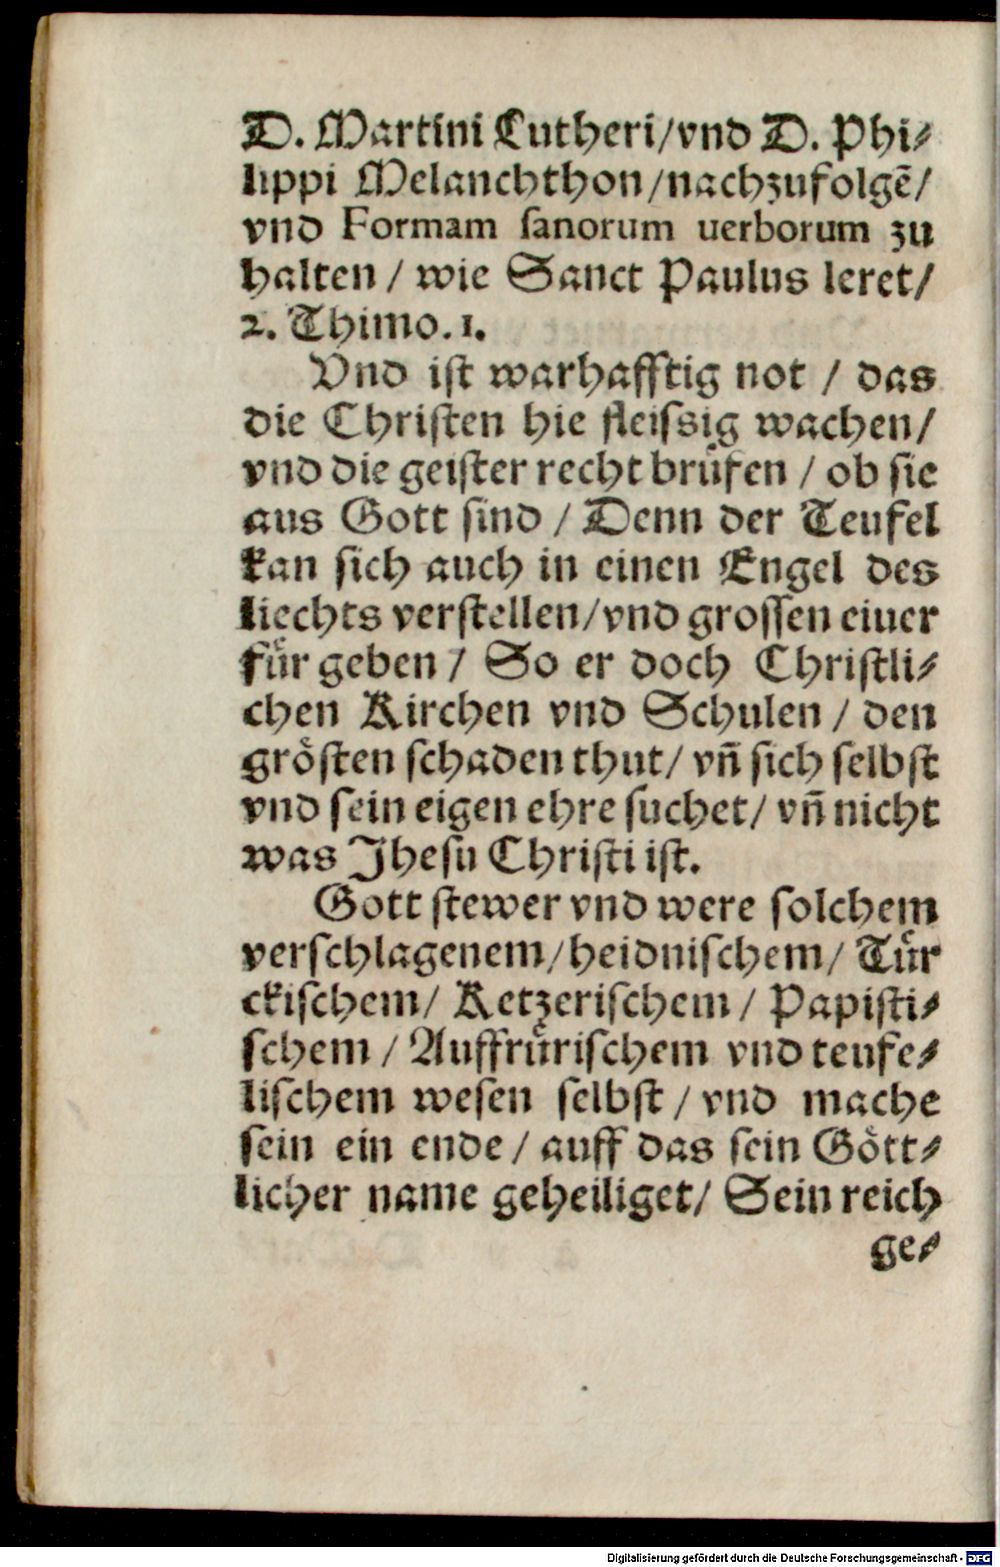 D. Martini Lutheri/vnd D. Phi⸗
lippi Melanchthon/nachzufolgẽ/
vnd Formam ſanorum uerborum zu
halten / wie Sanct Paulus leret/
2. Thimo. 1.
Vnd iſt warhafftig not / das
die Chriſten hie fleiſsig wachen/
vnd die geiſter recht bruͤfen / ob ſie
aus Gott ſind / Denn der Teufel
kan ſich auch in einen Engel des
liechts verſtellen/vnd groſſen eiuer
fuͤr geben / So er doch Chriſtli⸗
chen Kirchen vnd Schulen / den
groͤſten ſchaden thut/ vñ ſich ſelbſt
vnd ſein eigen ehre ſuchet/ vñ nicht
was Jheſu Chriſti iſt.
Gott ſtewer vnd were ſolchem
verſchlagenem/heidniſchem/ Tuͤr
ckiſchem/ Ketzeriſchem / Papiſti⸗
ſchem / Auffruͤriſchem vnd teufe⸗
liſchem weſen ſelbſt / vnd mache
ſein ein ende / auff das ſein Goͤtt⸗
licher name geheiliget/ Sein reich
ge⸗
Digitalisierung gefördert durch die Deutsche Forschungsgemeinschaft - DFG